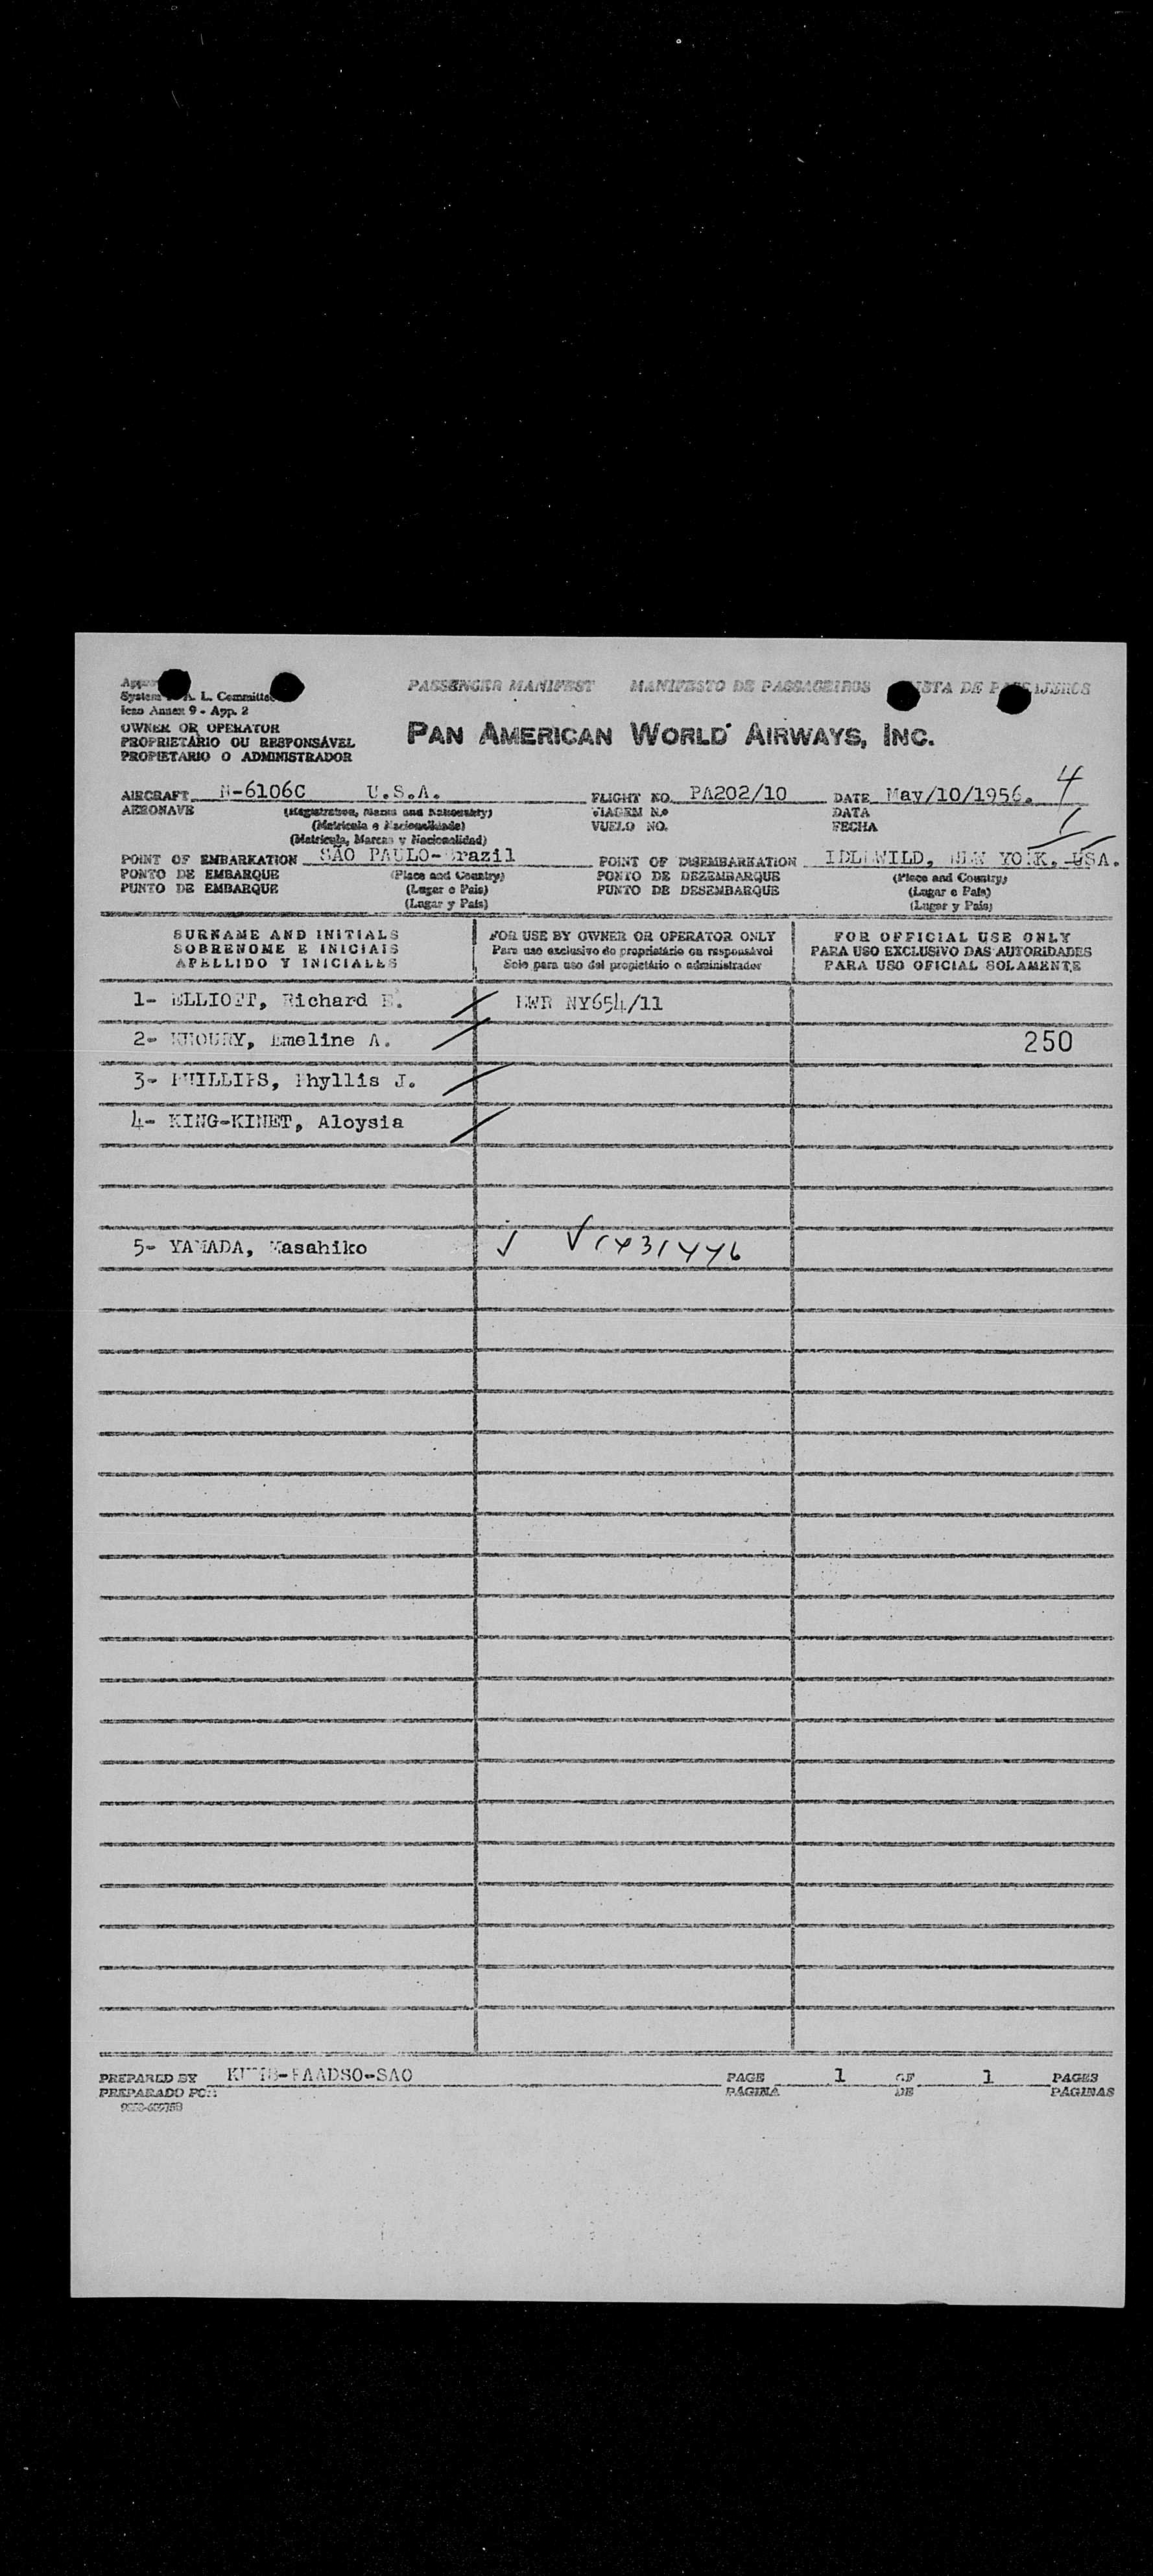 PASSENGER MANIFEST MANIFESTO DE PASSAGEIROS LISTA DE PASAJEROS
System A. L. Committee
Icao Annex 9 - App. 2
OWNER OR OPERATOR
PROPRIETÁRIO OU RESPONSÁVEL
PROPIETARIO O ADMINISTRADOR
PAN AMERICAN WORLD AIRWAYS, INC.
4
AIRCRAFT N-6106C U.S.A. FLIGHT NO. PA202/10 DATE May/10/1956.
AERONAVE (Registration, Marks and Nationality) VIAGEM N.º DATA
(Matrícula e Nacionalidade) VUELO NO. FECHA
(Matrícula, Marcas y Nacionalidad)
1
POINT OF EMBARKATION SÃO PAULO-Brazil POINT OF DISEMBARKATION IDLEWILD, NEW YORK, USA.
PONTO DE EMBARQUE (Place and Country) PONTO DE DEZEMBARQUE (Place and Country)
PUNTO DE EMBARQUE (Lugar e País) PUNTO DE DESEMBARQUE (Lugar e País)
(Lugar y País) (Lugar y País)
SURNAME AND INITIALS FOR USE BY OWNER OR OPERATOR ONLY FOR OFFICIAL USE ONLY
SOBRENOME E INICIAIS Para uso exclusivo do proprietário ou responsável PARA USO EXCLUSIVO DAS AUTORIDADES
APELLIDO Y INICIALES Solo para uso del propietário o administrador PARA USO OFICIAL SOLAMENTE
1- ELLIOTT, Richard E. EWR NY654/11
2- KHOURY, Emeline A. 250
3- PHILLIPS, Phyllis J.
4- KING-KINET, Aloysia
5- YAMADA, Masahiko √ √
PREPARED BY PAADSO-SAO PAGE 1 OF 1 PAGES
PREPARADO POR: PÁGINA DE PÁGINAS